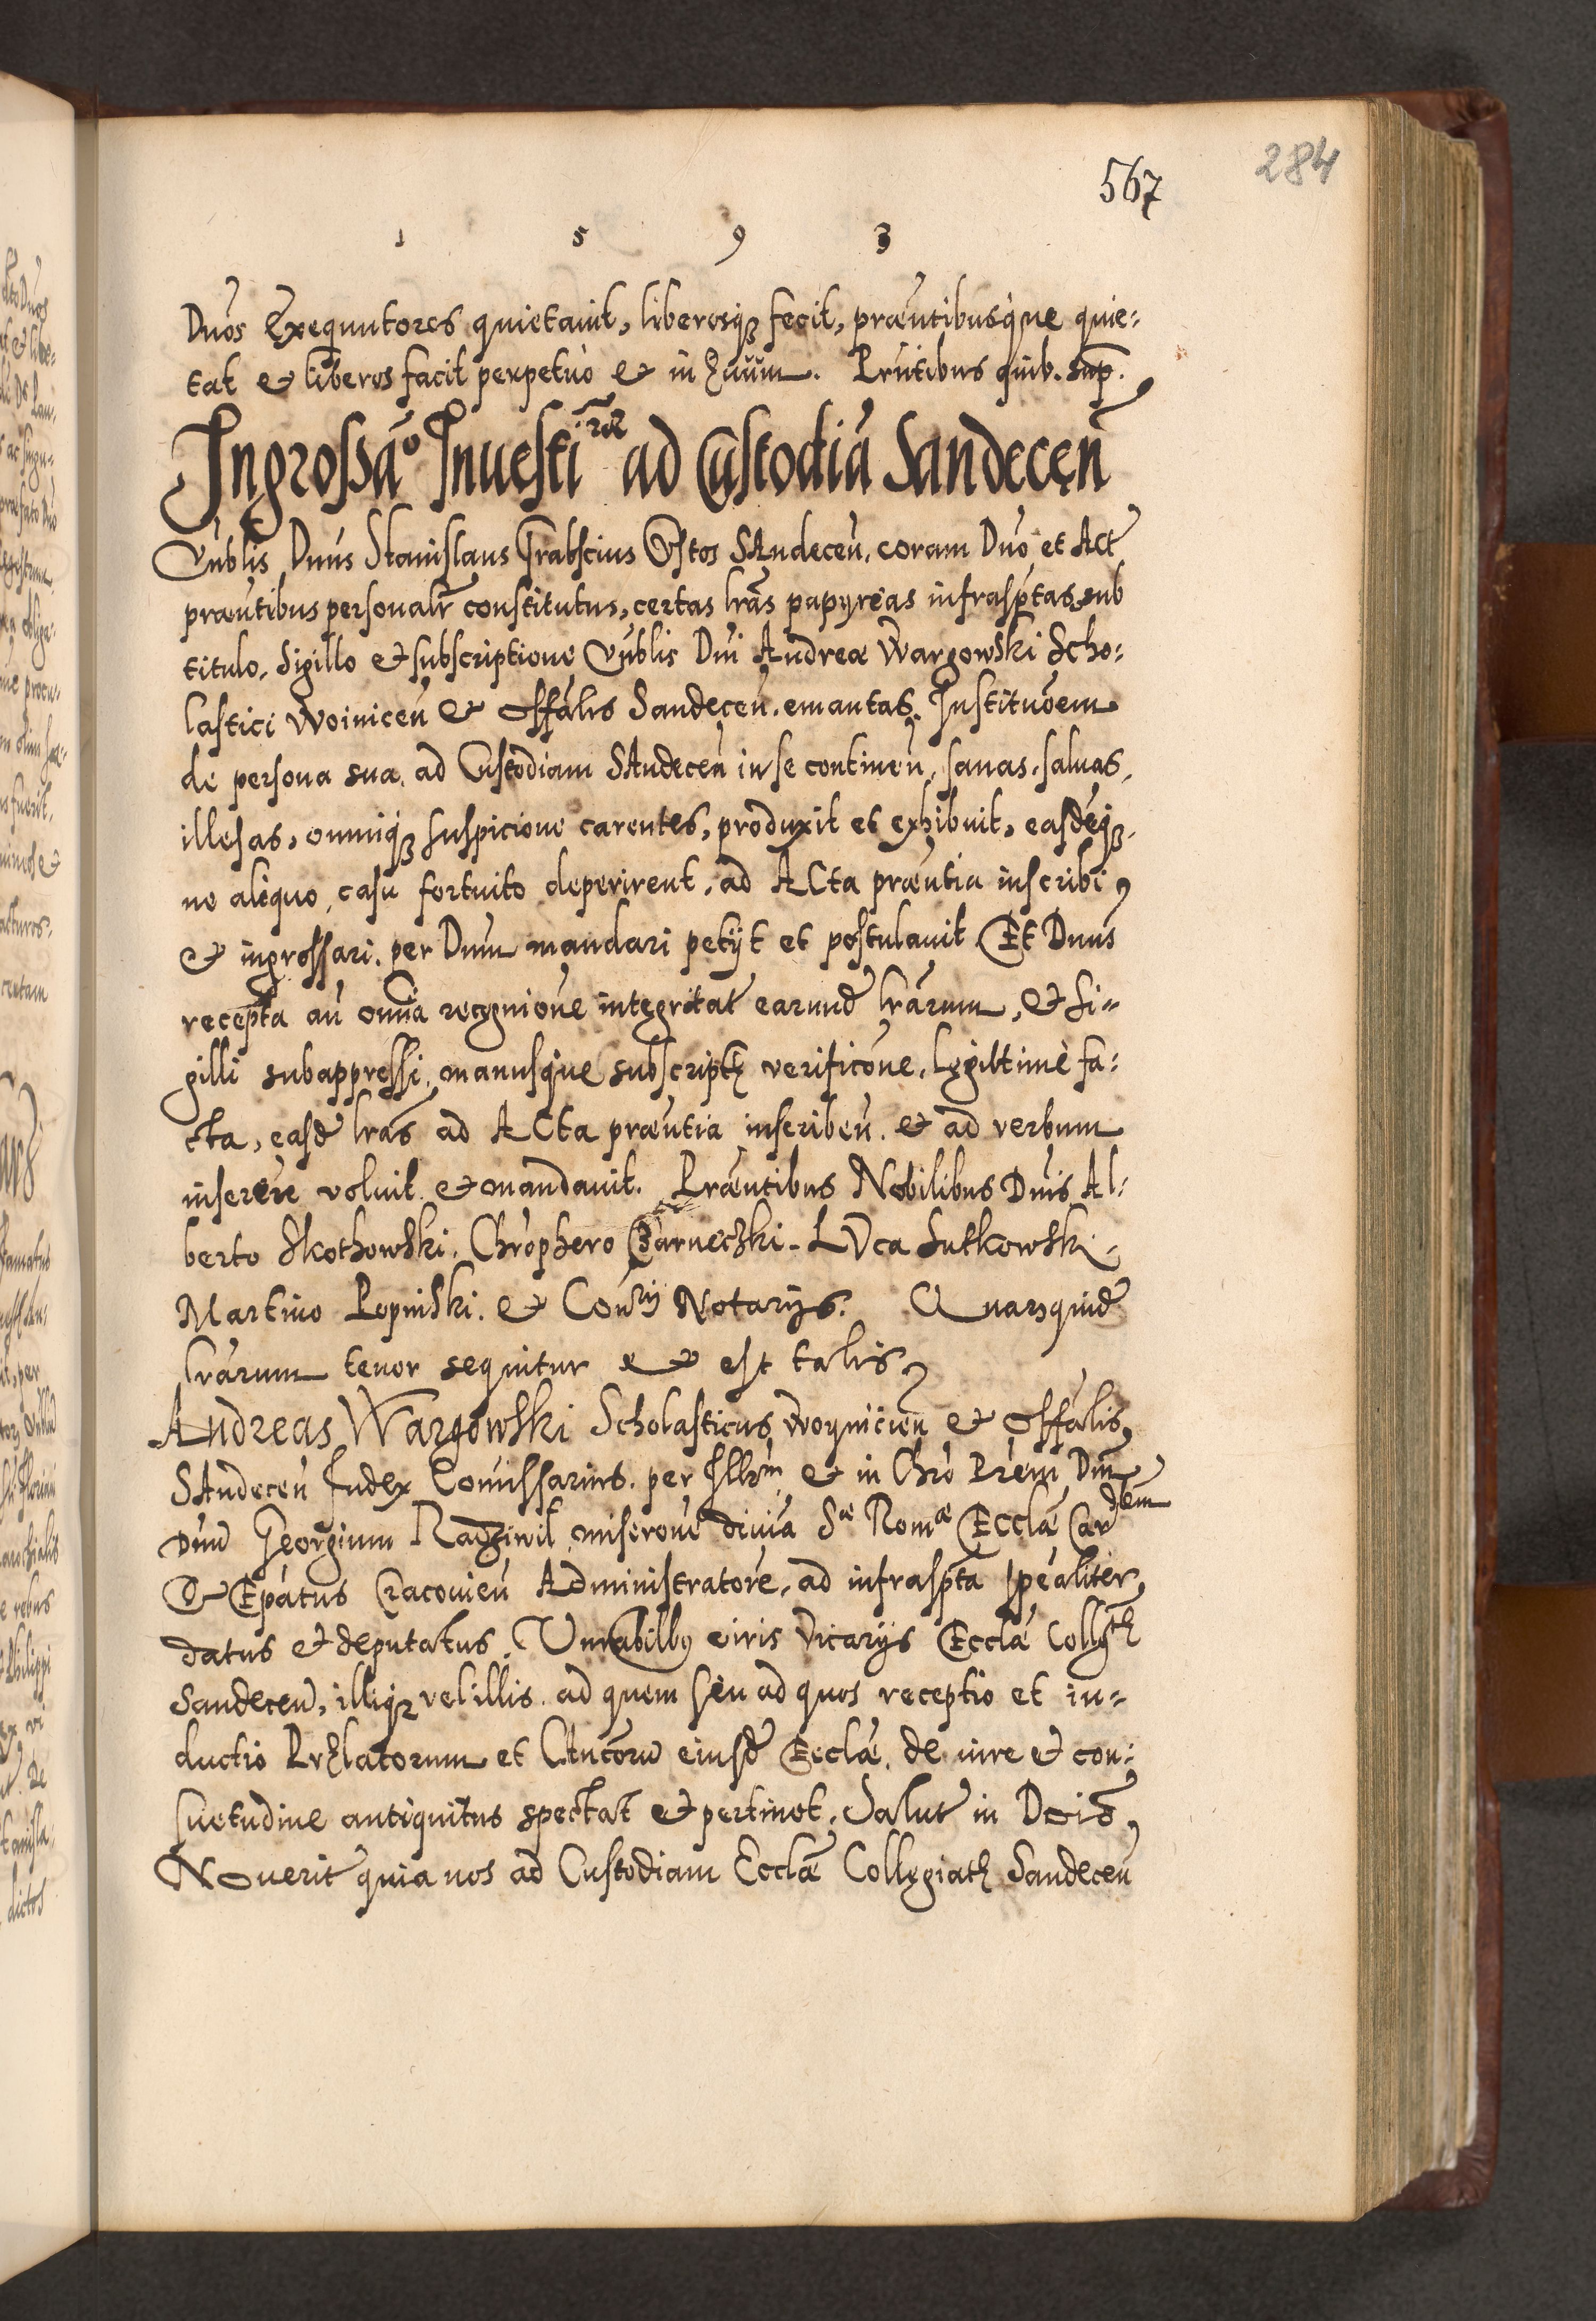 567
284
1 5 9 3
Dnos Exequutores quietauit, liberosq; fecit, præntibusque quie:
tat et liberos facit perpetuo et in æuum. Prntibus quib. sup.
Ingrossão Inuestirae ad Custodiã Sandeceñ
Vnblis Dnus Stanislaus Grabscius Custos SAndeceñ. coram Dno et Act
præntibus personalr constitutus, certas lras papyreas infrasptas sub
titulo, Sigillo et subscriptione Vnblis Dni Andreæ Wargowski Scho:
lastici Woiniceñ et Offalis Sandeceñ. emantas. Institucoem
de persona sua. ad Custodiam SAndeceñ in se contineñ, sanas. saluas,
illesas, omniq; suspicione carentes, produxit et exhibuit, easdeq;
ne aliquo, casu fortuito deperirent. ad ACta præntia inscribi,
et ingrossari. per Dnum mandari petijt et postulauit. Et Dnus
recepta añ omnia recognione integritat earund lrarum, et Si=
gilli subappressi, manusque subscriptæ verificone, legittime fa:
cta, easd lras ad ACta præntia inscribeñ. et ad verbum
inserere voluit et mandauit. Præntibus Nobilibus Dnis Al:
berto Skothowski, Chrophero Czarneczki. LVca Sutkowski,
Martino Lopniski. et Conrij Notarijs. Quarumquid
lrarum tenor sequitur et est talis,
Andreas Wargowski Scholasticus Woynicieñ et Offalis,
SAndeceñ Judex Comissarius. per Illrm et in Chro Prem Dnm
Dnm Georgium Radziwil miserone diuia Sæ Romæ Ecclæ Cardlem
et Epatus Cracouieñ Administratore, ad infraspta spealiter,
datus et deputatus. Vnrabilbus viris Vicarijs Ecclæ Collgtæ
Sandeceñ, illiq; vel illis ad quem seu ad quos receptio et in=
ductio Prælatorum et Cancorum eiusd Ecclæ. de iure et con:
suetudine antiquitus spectat et pertinet. Salut in Dno,
NOuerit quia nos ad Custodiam Ecclæ Collegiatæ Sandeceñ